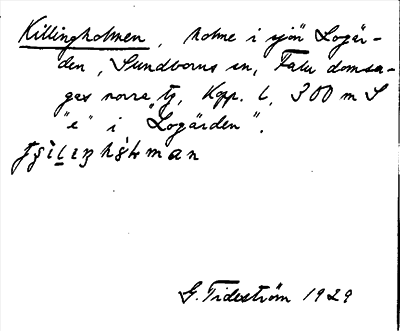 Killingholmen, holme i sjön Logär-
den, Sundborns sn, Falu domsa-
gas norra tg, Kopp. l, 300 m S
"e" i "Logärden".

G. Tideström 1929